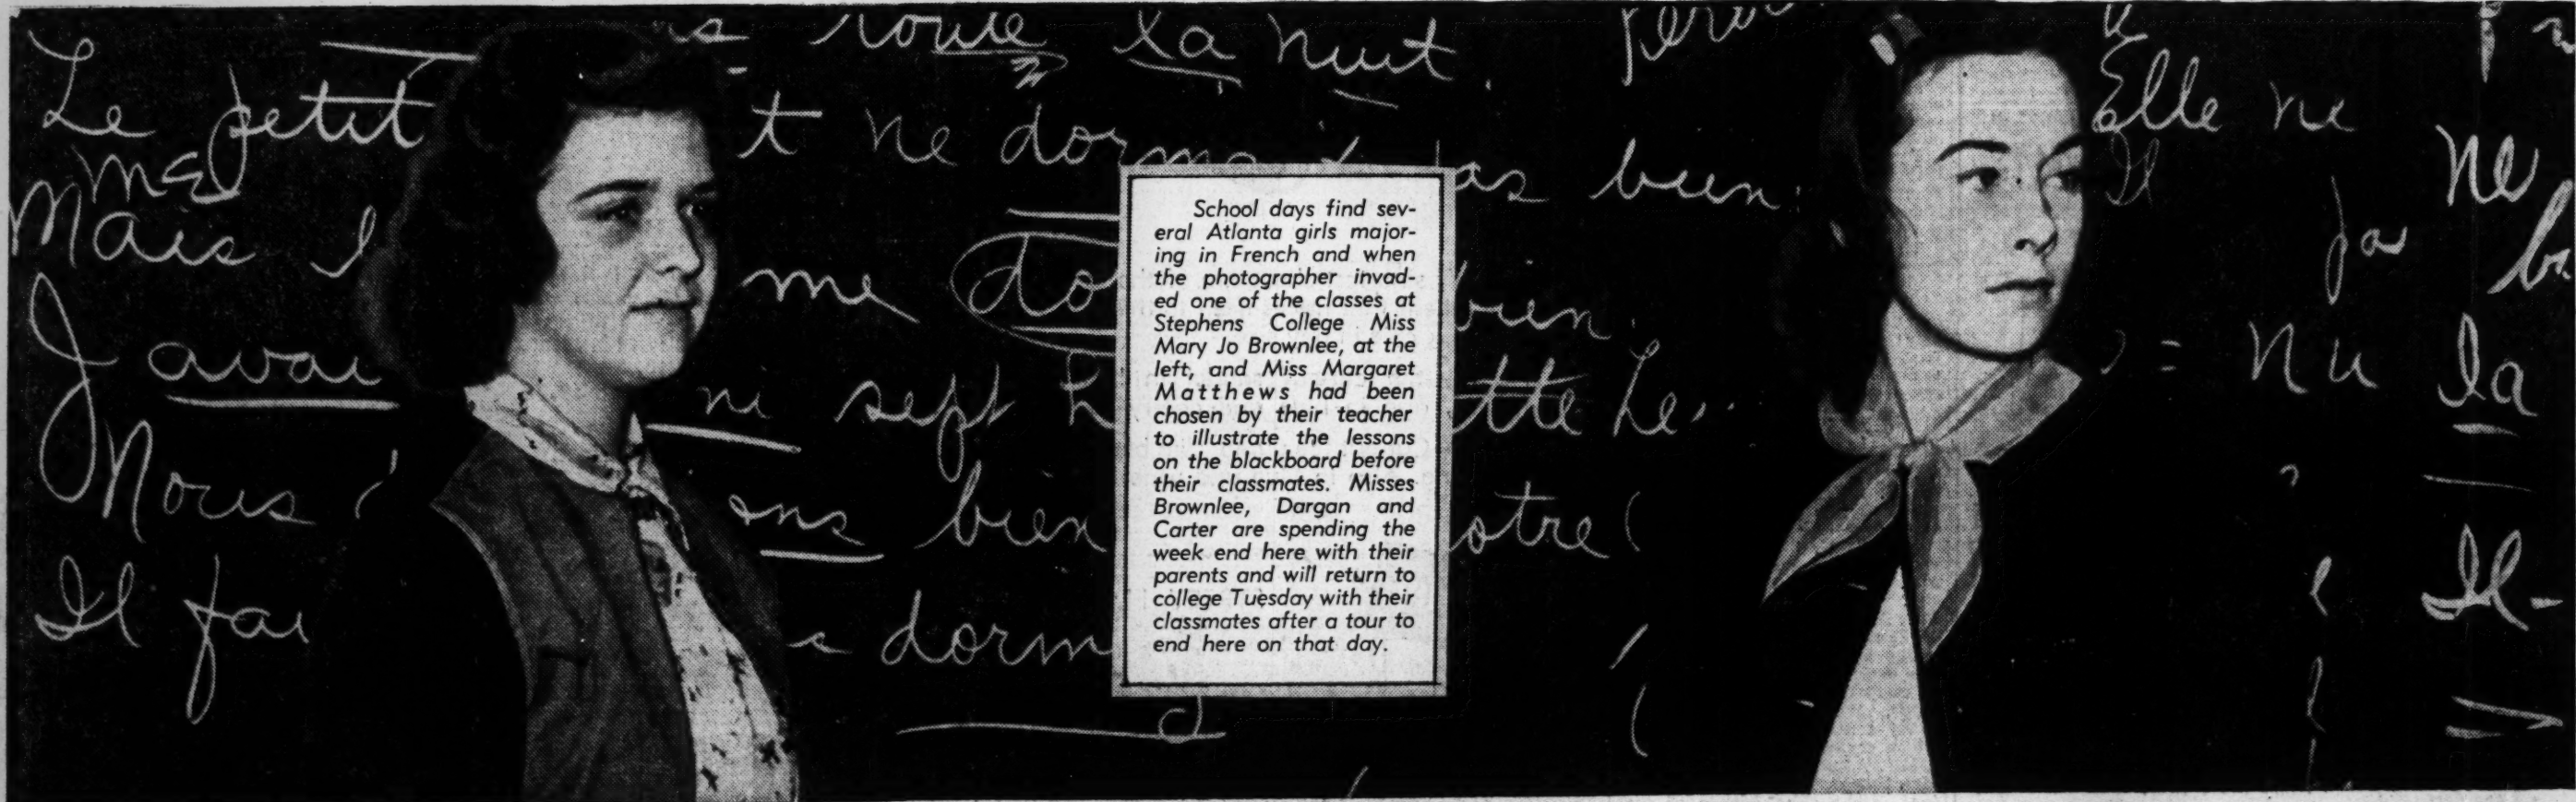 is route la nuit.
Le petit t ne dorma as bien.
Mais l me do bien.
J'avai ni sept h tte Le
Nous ons bien otre
Il fai s dorm
School days find sev-
eral Atlanta girls major-
ing in French and when
the photographer invad-
ed one of the classes at
Stephens College Miss
Mary Jo Brownlee, at the
left, and Miss Margaret
Matthews had been
chosen by their teacher
to illustrate the lessons
on the blackboard before
their classmates. Misses
Brownlee, Dargan and
Carter are spending the
week end here with their
parents and will return to
college Tuesday with their
classmates after a tour to
end here on that day.
Elle ne
ne
Il
pas
= nu la
Il